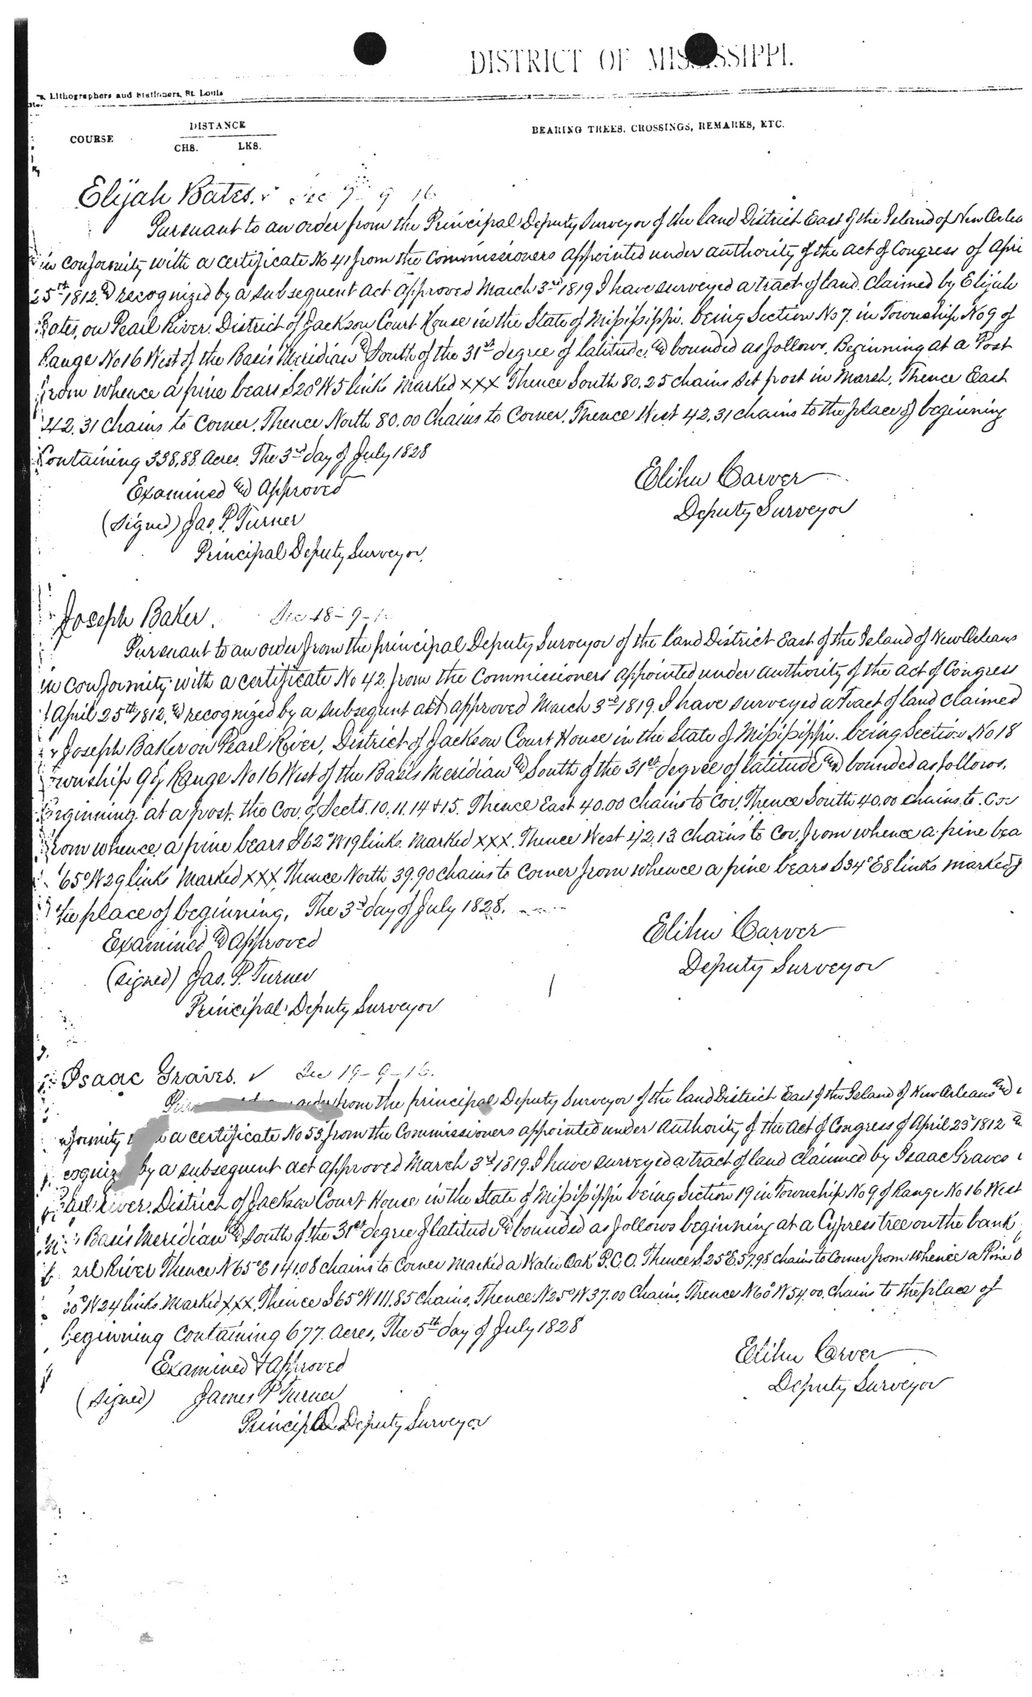 DISTRICT OF MISSISSIPPI.
Lithographers and Stationers, St. Louis
COURSE
DISTANCE
CHS. LKS.
BEARING TREES, CROSSINGS, REMARKS, ETC.
Elijah Bates. Sec 7 - 9 16
Pursuant to an order from the Principal Deputy Surveyor of the land District East of the Island of New Orlea
in conformity with a certificate No 41 from the Commissioners appointed under authority of the act of Congress of Apri
25th 1812, & recognized by a subsequent act approved March 3rd 1819 I have surveyed a tract of land claimed by Elijah
Bates, on Pearl River District of Jackson Court House in the State of Missisippi. being Section No 7. in Township No 9 of
Range No 16 West of the Basis Meridian & South of the 31st degree of latitude, & bounded as follows. Beginning at a Post
from whence a pine bears S20°W5 links Marked XXX Thence South 80.25 chains Set post in Marsh, Thence East
42.31 Chains to Corner, Thence North 80.00 Chains to Corner. Thence West 42.31 chains to the place of beginning
Containing 338.88 Acres. The 3rd day of July 1828
Elihu Carver
Deputy Surveyor
Examined & Approved
(Signed) Jas. P. Turner
Principal Deputy Surveyor.
Joseph Baker. Sec 18 - 9 - 1
Pursuant to an order from the principal Deputy Surveyor of the land District East of the Island of New Orleans
in conformity with a certificate No 42, from the Commissioners appointed under authority of the act of Congress
April 25th 1812, & recognized by a subsequent act approved March 3rd 1819. I have surveyed a Tract of land claimed
Joseph Baker on Pearl River, District of Jackson Court House in the State of Missisippi. being Section No 18
ownship 9 of Range No 16 West of the Basis Meridian & South of the 31st degree of latitude & bounded as follows.
Beginning at a post the Cor. of Sects. 10. 11. 14 & 15. Thence East 40.00 chains to Cor. Thence South 40.00 chains to Cor
from whence a pine bears S62°W19 links. Marked XXX. Thence West 42.13 chains to Cor, from whence a pine bea
65°W 29 links Marked XXX. Thence North 39.90 chains to Corner from whence a pine bears S34°E8 links marked
the place of beginning, The 3rd day of July 1828.
Elihu Carver
Deputy Surveyor
Examined & Approved
(signed) Jas. P. Turner
Principal Deputy Surveyor
Isaac Graves. Sec 19 - 9 - 16.
order from the principal Deputy Surveyor of the land District East of the Island of New Orleans and
nformity a certificate No 55, from the Commissioners appointed under Authority of the Act of Congress of April 25th 1812 &
ecogniz by a subsequent act approved March 3rd 1819. I have surveyed a tract of land claimed by Isaac Graves
Pearl River. District of Jackson Court House in the State of Missisippi being Section 19 in Township No 9 of Range No 16 West
Basis Meridian & South of the 31st degree of latitude & bounded as follows beginning at a Cypress tree on the bank
earl River Thence N65°E 141.08 chains to Corner marked a Water Oak P.C.O. Thence S25°E57.98 chains to Corner from whence a Pine b
W24 links Marked XXX, Thence S65°W 111.85 chains, Thence N25°W 37.00 Chains, Thence N60°W54.00. chains to the place of
beginning Containing 677. acres, The 5th day of July 1828
Elihu Carver
Deputy Surveyor
Examined & Approved
(signed) James P Turner
Principal Deputy Surveyor